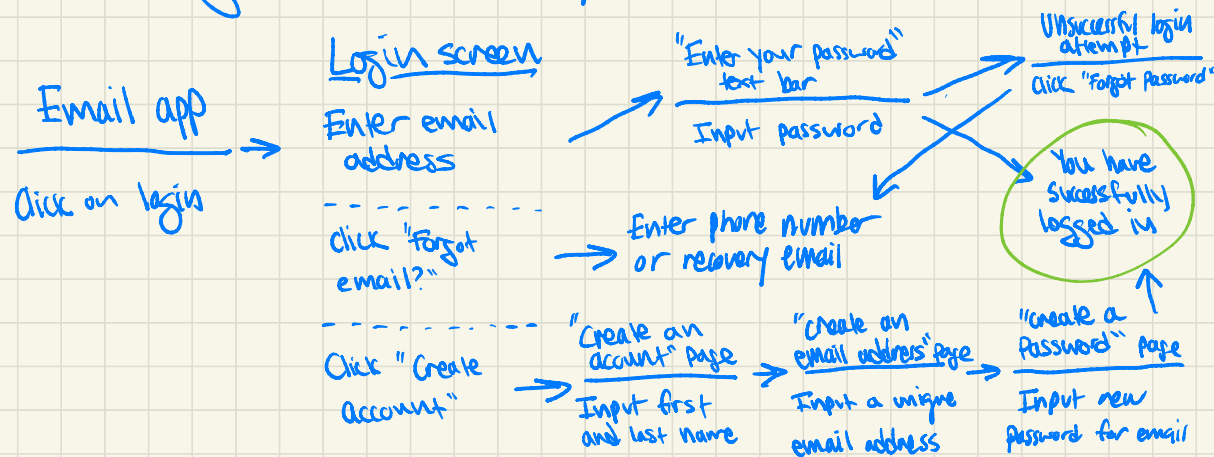 Email app
Click on login
Login screen
Enter email
address
Click "Forgot
email?"
Click "Create
account"
"Enter your password"
text bar
Input password
Unsuccessful login
attempt
Click "Forgot Password"
You have
successfully
logged in
Enter phone number
or recovery email
"Create an
account" page
Input first
and last name
"Create an
email address" page
Input a unique
email address
"Create a
Password" page
Input new
password for email